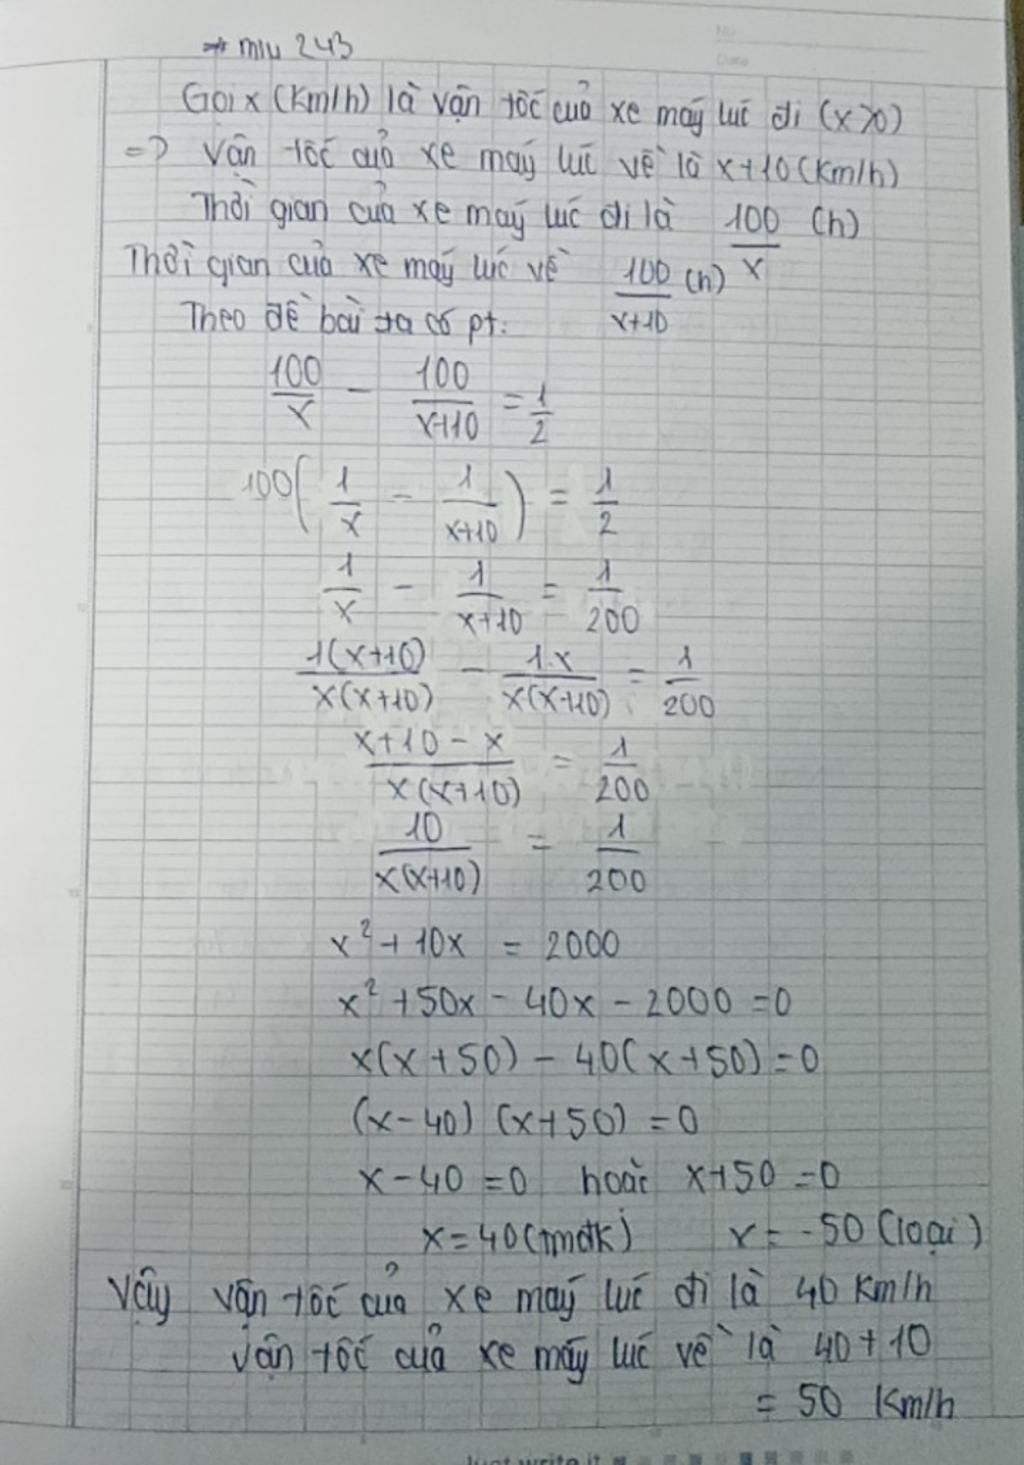 miu 243
Gọi x (Km/h) là vận tốc của xe máy lúc đi (x>0)
=> vận tốc của xe máy lúc về là x+10 (Km/h)
Thời gian của xe máy lúc đi là 100/x (h)
Thời gian của xe máy lúc về 100/x+10 (h)
Theo đề bài ta có pt:
100/x - 100/x+10 = 1/2
100(1/x - 1/x+10) = 1/2
1/x - 1/x+10 = 1/200
1(x+10)/x(x+10) - 1.x/x(x+10) = 1/200
x+10-x/x(x+10) = 1/200
10/x(x+10) = 1/200
x²+10x = 2000
x²+50x-40x-2000=0
x(x+50)-40(x+50)=0
(x-40)(x+50)=0
x-40=0 hoặc x+50=0
x=40(tmđk) x=-50(loại)
Vậy vận tốc của xe máy lúc đi là 40 Km/h
vận tốc của xe máy lúc về là 40+10
= 50 Km/h
Just write it